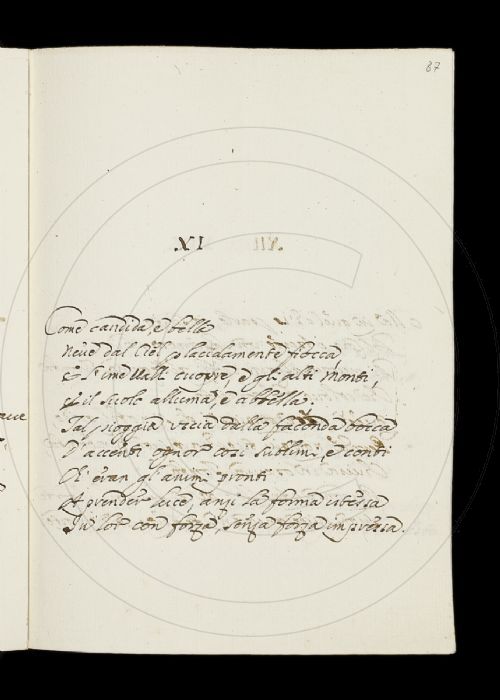 87
XI
Come candida, e bella
Neve dal Ciel placidamente fiocca,
E l'ime Valli cuopre, e gli alti Monti,
E il Suolo alluma, e abbella.
Tal pioggia uscia dalla faconda bocca
D'accenti ognor così sublimi, e conti
Ch'eran gl'animi pronti
A prender luce anzi la forma istessa
In lor con forza, senza forza impressa.